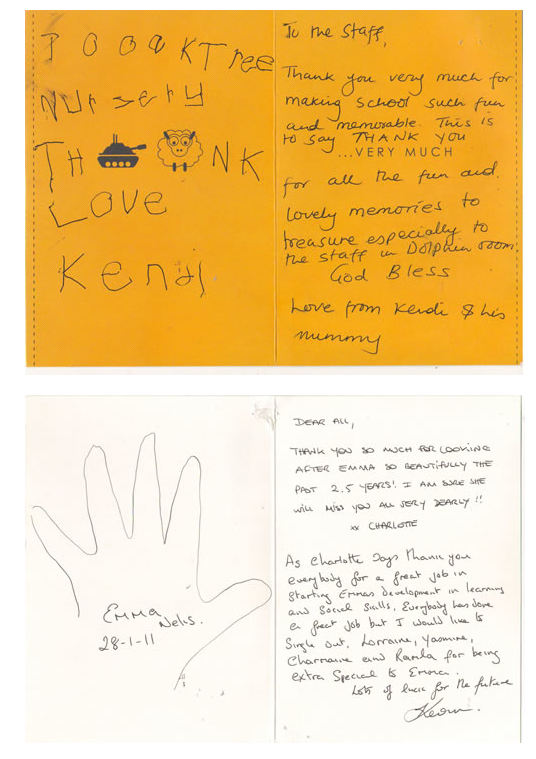 TRee
NUrserY
TH NK
LOVE
To the Staff,
Thank you very much for
making school such fun
and memorable. This is
to say THANK YOU
...VERY MUCH
for all the fun and
lovely memories to
treasure especially to
the staff in Dolphin room.
God Bless
Love from Kendi & his
mummy
Emma
Nelis.
28-1-11
DEAR ALL,
THANK YOU SO MUCH FOR LOOKING
AFTER EMMA SO BEAUTIFULLY THE
PAST 2.5 YEARS! I AM SURE SHE
WILL MISS YOU ALL VERY DEARLY !!
xx CHARLOTTE
As Charlotte Says Thank you
everybody for a great job in
Starting Emmas development in learning
and Social Skills, Everybody has done
a great job but I would like to
Single out, Lorraine, Yasmine,
Charmaine and Ramla for being
extra Special to Emma.
Lots of luck for the future